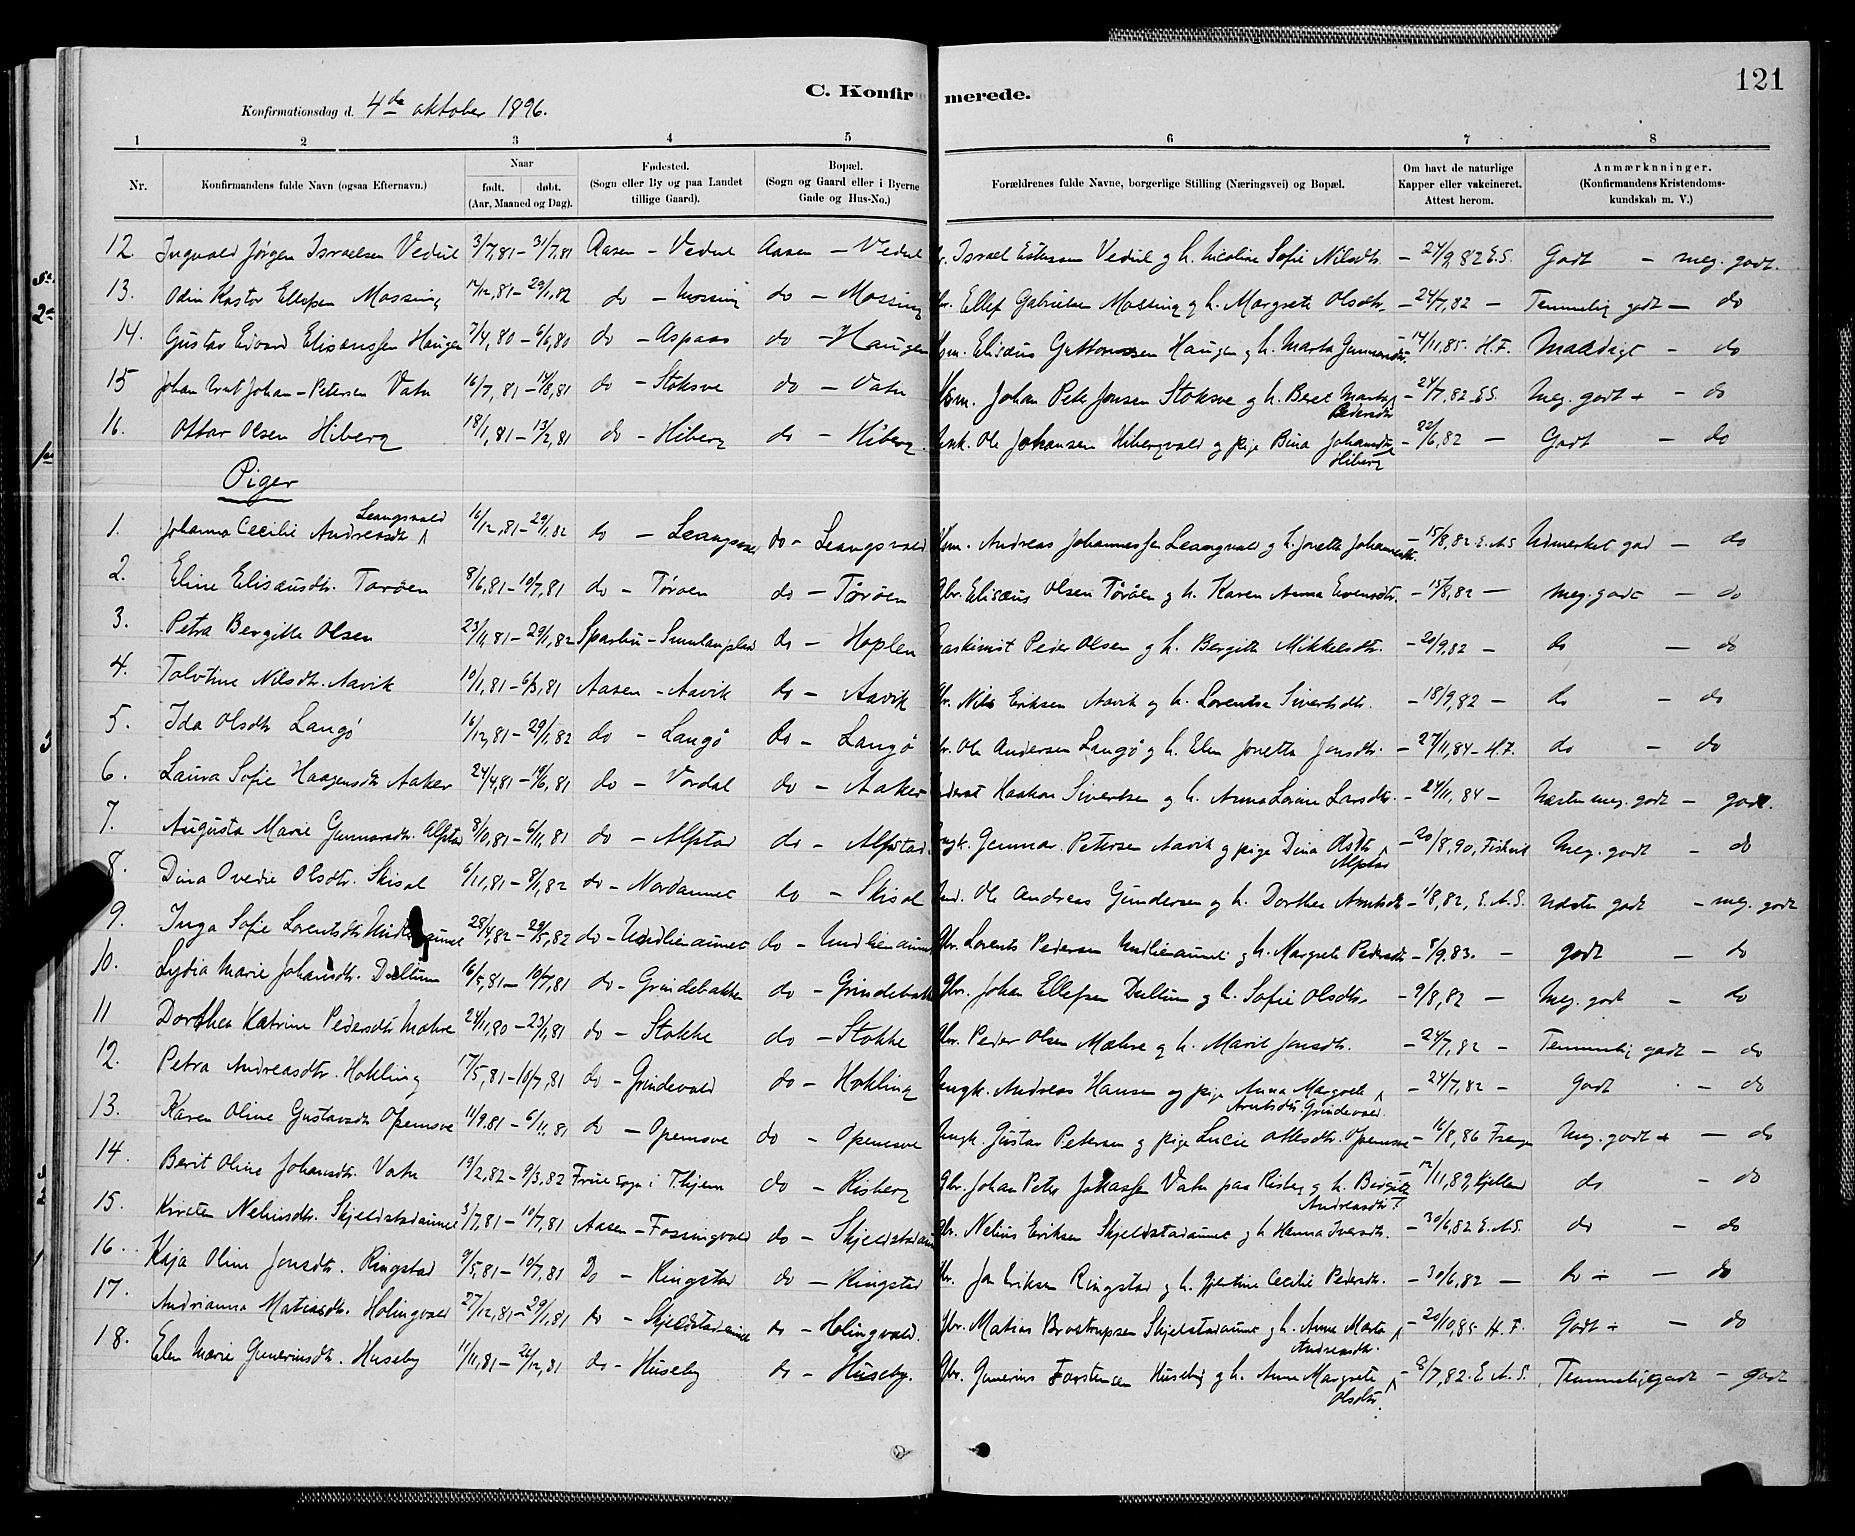 121
C. Konfirmerede.
Konfirmationsdag d. 4de oktober 1896.
1 2 3 4 5 6 7 8
Nr. Konfirmandens fulde Navn (ogsaa Efternavn.) Naar født. døbt. (Aar, Maaned og Dag). Fødested. (Sogn eller By og paa Landet tillige Gaard). Bopæl. (Sogn og Gaard eller i Byerne Gade og Hus-No.) Forældrenes fulde Navne, borgerlige Stilling (Næringsvei) og Bopæl. Om havt de naturlige Kapper eller vakcineret. Attest herom. Anmærknninger. (Konfirmandens Kristendomskundskab m. V.)
12 Ingvald Jørgen Israelsen Vedul 3/7,81 – 31/7,81 Aasen – Vedul Aasen – Vedul Israel Estensen Vedul g h. Nicoline Sofie Nilsdtr. – 24/9 82 E.S. Godt – meg. godt.
13. Odin Kastor Ellefsen Mossing 17/12,81 – 29/1,82 do – Mossing do – Mossing Ellef Gabrielsen Mossing g h. Margrete Olsdtr. – 24/7,82 – Temmelig godt – do
14. Gustav Edvard Elisæussen Haugen 7/4,80 – 6/6,80 do – Aspaas do – Haugen Hsm. Elisæus Guttormsen Haugen g h. Marta Gunnarsdtr. – 14/11,85. H.F. Maadigt – do
15 Johan Johan-Petersen Vatn 16/7,81 – 14/8,81 do – Stoksve do – Vatn Hsm. Johan Peter Jonsen Stoksve g h. Beret Marta Pedersdtr – 24/7,82 E.S. Meg. godt + – do
16. Ottar Olsen Hiberg 18/1,81 – 13/2,81 do – Hiberg do – Hiberg. Enk. Ole Johansen Hibergvald g pige Bina Johansdtr Hiberg – 22/6,82 – Godt – do
Piger
1. Johanna Cecilie Andreasdtr Leangsvald 16/12,81 – 29/1,82 do – Leangsvald do – Leangsvald Hsm. Andreas Johannessen Leangvald g h. Jonetta Johannesdtr. – 15/8,82 E.A.S Udmerket god – do
2. Eline Elisæusdtr. Tørøen 8/6,81 – 10/7,81 do – Tørøen do – Tørøen Gbr. Elisæus Olsen Tørøen g h. Karen Anna Evensdtr. – 15/8,82 – Meg. godt – do
3. Petra Bergitte Olsen 23/11,81 – 29/1,82 Sparbu – Sunnanplad do – Hoplen Maskinist Peder Olsen g h. Bergitte Mikkelsdtr. – 20/9,82 – do – do
4. Talotine Nilsdtr. Aavik 10/1,81 – 6/3,81 Aasen – Aavik do – Aavik Gbr. Nils Eriksen Aavik g h. Lorentse Sivertsdtr. – 18/9,82 – do – do
5. Ida Olsdtr Langø 16/12,81 – 29/1,82 do – Langø do – Langø Gbr. Ole Andersen Langø g h. Elen Jonetta Jonsdtr. – 27/11,84 – H.F. do – do
6. Laura Sofie Haagensdtr Aaker 24/4,81 – 19/6,81 do – Vordal do – Aaker Haakon Sivertsen g h. Anna Lovise Larsdtr. – 24/11,84 – Næsten meg. godt – godt.
7. Augusta Marie Gunnarsdtr. Alfstad 8/10,81 – 6/11,81 do – Alfstad do – Alfstad. Ungk. Gunnar Petersen Aavik g pige Dina Olsdtr Alfstad – 20/8,90, Fiskvik Meg. godt – do
8. Dina Ovedie Olsdtr. Skisal 6/11,81 – 8/1,82 do – Nordaunet do – Skisal Ole Andreas Gundersen g h. Dorthea Arntsdtr – 1/8,82, E.A.S. Næsten godt – meg. godt
9. Inga Sofie Lorentsdtr Undlienaunet 28/4,82 – 29/5,82 do – Undlienaunet do – Undlienaunet Gbr. Lorents Pedersen Undlienaunet g h. Margrete Pedersdtr – 8/9,83. – godt – do
10. Lydia Marie Johansdtr. Daltun 16/5,81 – 10/7,81 do – Grindebakken do – Grindebakken Gbr. Johan Ellefsen Daltun g h. Sofie Olsdtr. – 9/8,82 – Meg. godt – do
11 Dorthea Katrine Pedersdtr Mæhre 24/11,80 – 23/1,81 do – Stokke do – Stokke Gbr. Peder Olsen Mæhre g h. Marit Jonsdtr. – 24/7,82 – Temmelig godt – do
12. Petra Andreasdtr. Hokling 17/5,81 – 10/7,81 do – Grindevald do – Hokling Ungk. Andreas Hansen og pige Anna Margrete Arntsdtr Grindevald. – 24/7,82 – Godt – do
13. Karen Oline Gustavsdtr Opemsve 11/9,81 – 6/11,81 do – Opemsve do – Opemsve Ungk. Gustav Petersen g pige Lucie Ottesdtr. Opemsve – 16/8,86 Meg. godt + – do
14. Berit Oline Johansdtr. Vatn 19/2,82 – 9/3,82 Frue sogn i T.hjem do – Risberg Gbr. Johan Peter Johansen Vatn paa Risberg g h. Bergitte Andreasdtr. 12/11,89, Kjelland do – do
15. Kirsten Neliusdtr. Skjeldstadaunet 3/7,81 – 10/7,81 Aasen – Fossingvald do – Skjeldstadaun Gbr. Nelius Eriksen Skjeldstadaunet g h. Hanna Iversdtr. – 30/6,82 E.A.S. do – do
16. Kaja Oline Jonsdtr. Ringstad 9/5,81 – 10/7,81 Do – Ringstad do – Ringstad Gbr. Jon Eriksen Ringstad g h. Gjertine Cecilie Pedersdtr. – 30/6,82 – do ÷ – do
17. Andrianna Matiasdtr. Holingvald 27/12,81 – 29/1,81 do – Skjeldstadaunet do – Holingvald. Gbr. Matias Brostrupsen Skjelstadaunet g h. Anne Marta Andreasdtr. – 20/10,85 H.F. Godt ÷ – do
18. Elen Marie Guneriusdtr. Huseby 11/11,81 – 26/12,81 do – Huseby do – Huseby. Gbr. Gunerius Forstensen Huseby g h. Anne Margrete Olsdtr. – 8/7,82. E.A.S. Temmelig godt – godt